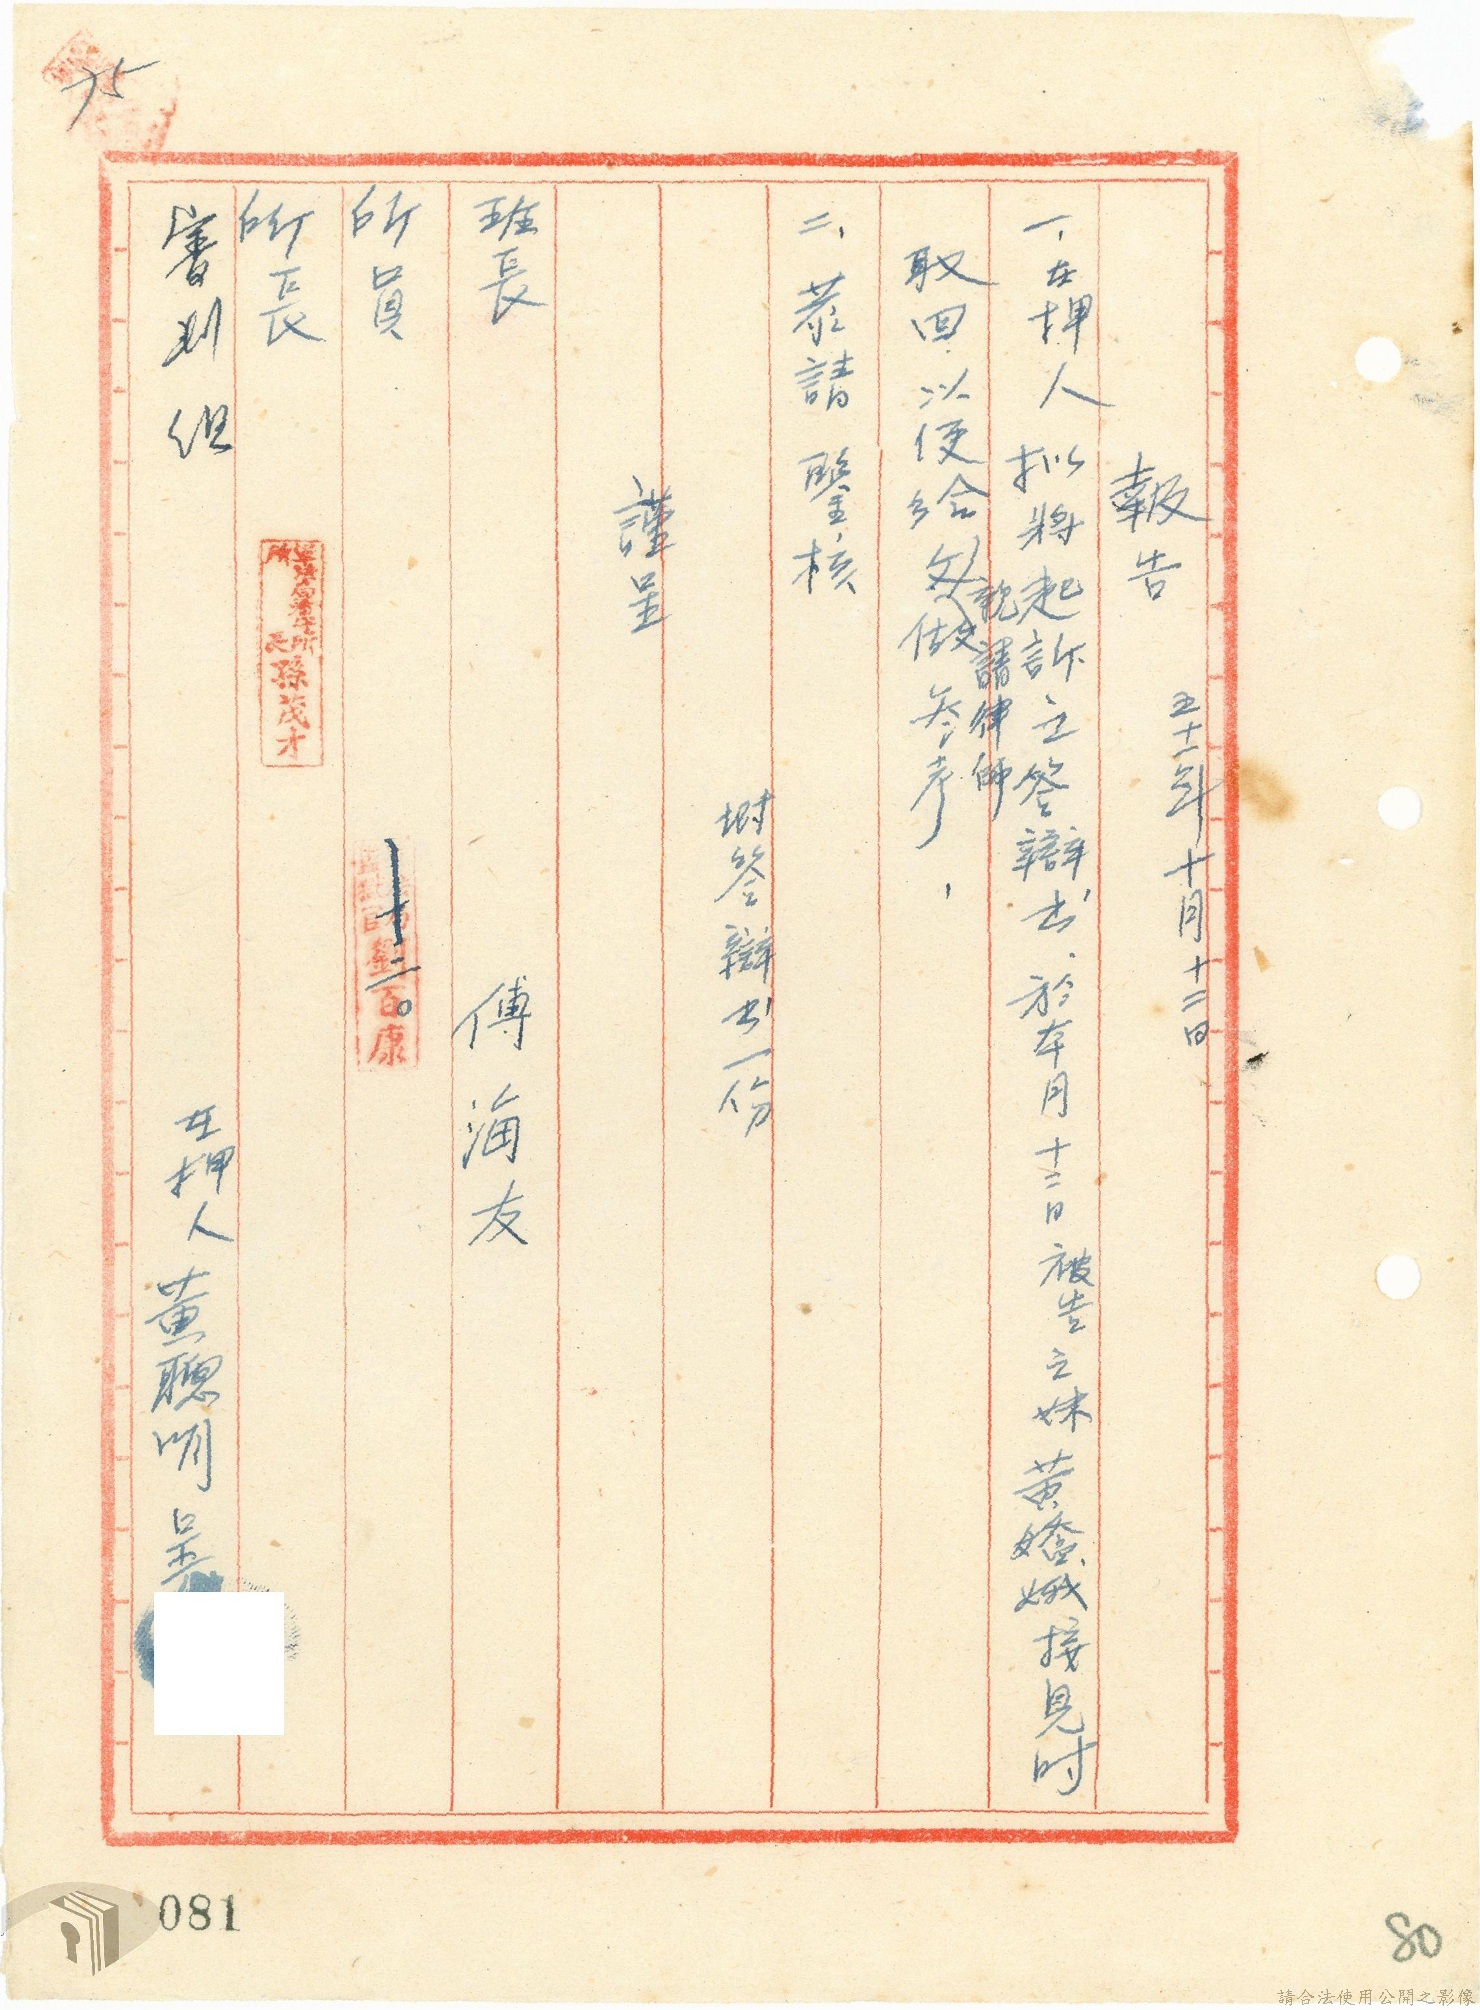 報告
五十一年十月十二日
一、在押人拟將起訴之答辯书、於本月十二日被告之妹黃嬌娥接見时
取回、以便給父親請律師做參考、
二、恭請鑒核
附答辯书一份
謹呈
班長 傅海友
所員
十二
劉百康
所長
孫茂才
審判組
在押人黃聰明呈
75
081
80
請合法使用公開之影像